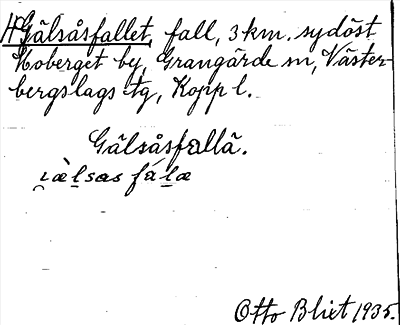 H Gälsåsfallet, fall, 3 km. sydöst
Noberget by, Grangärde sn, Väster-
bergslags tg, Kopp l.
Gälsåsfallä.
Otto Blixt 1935.